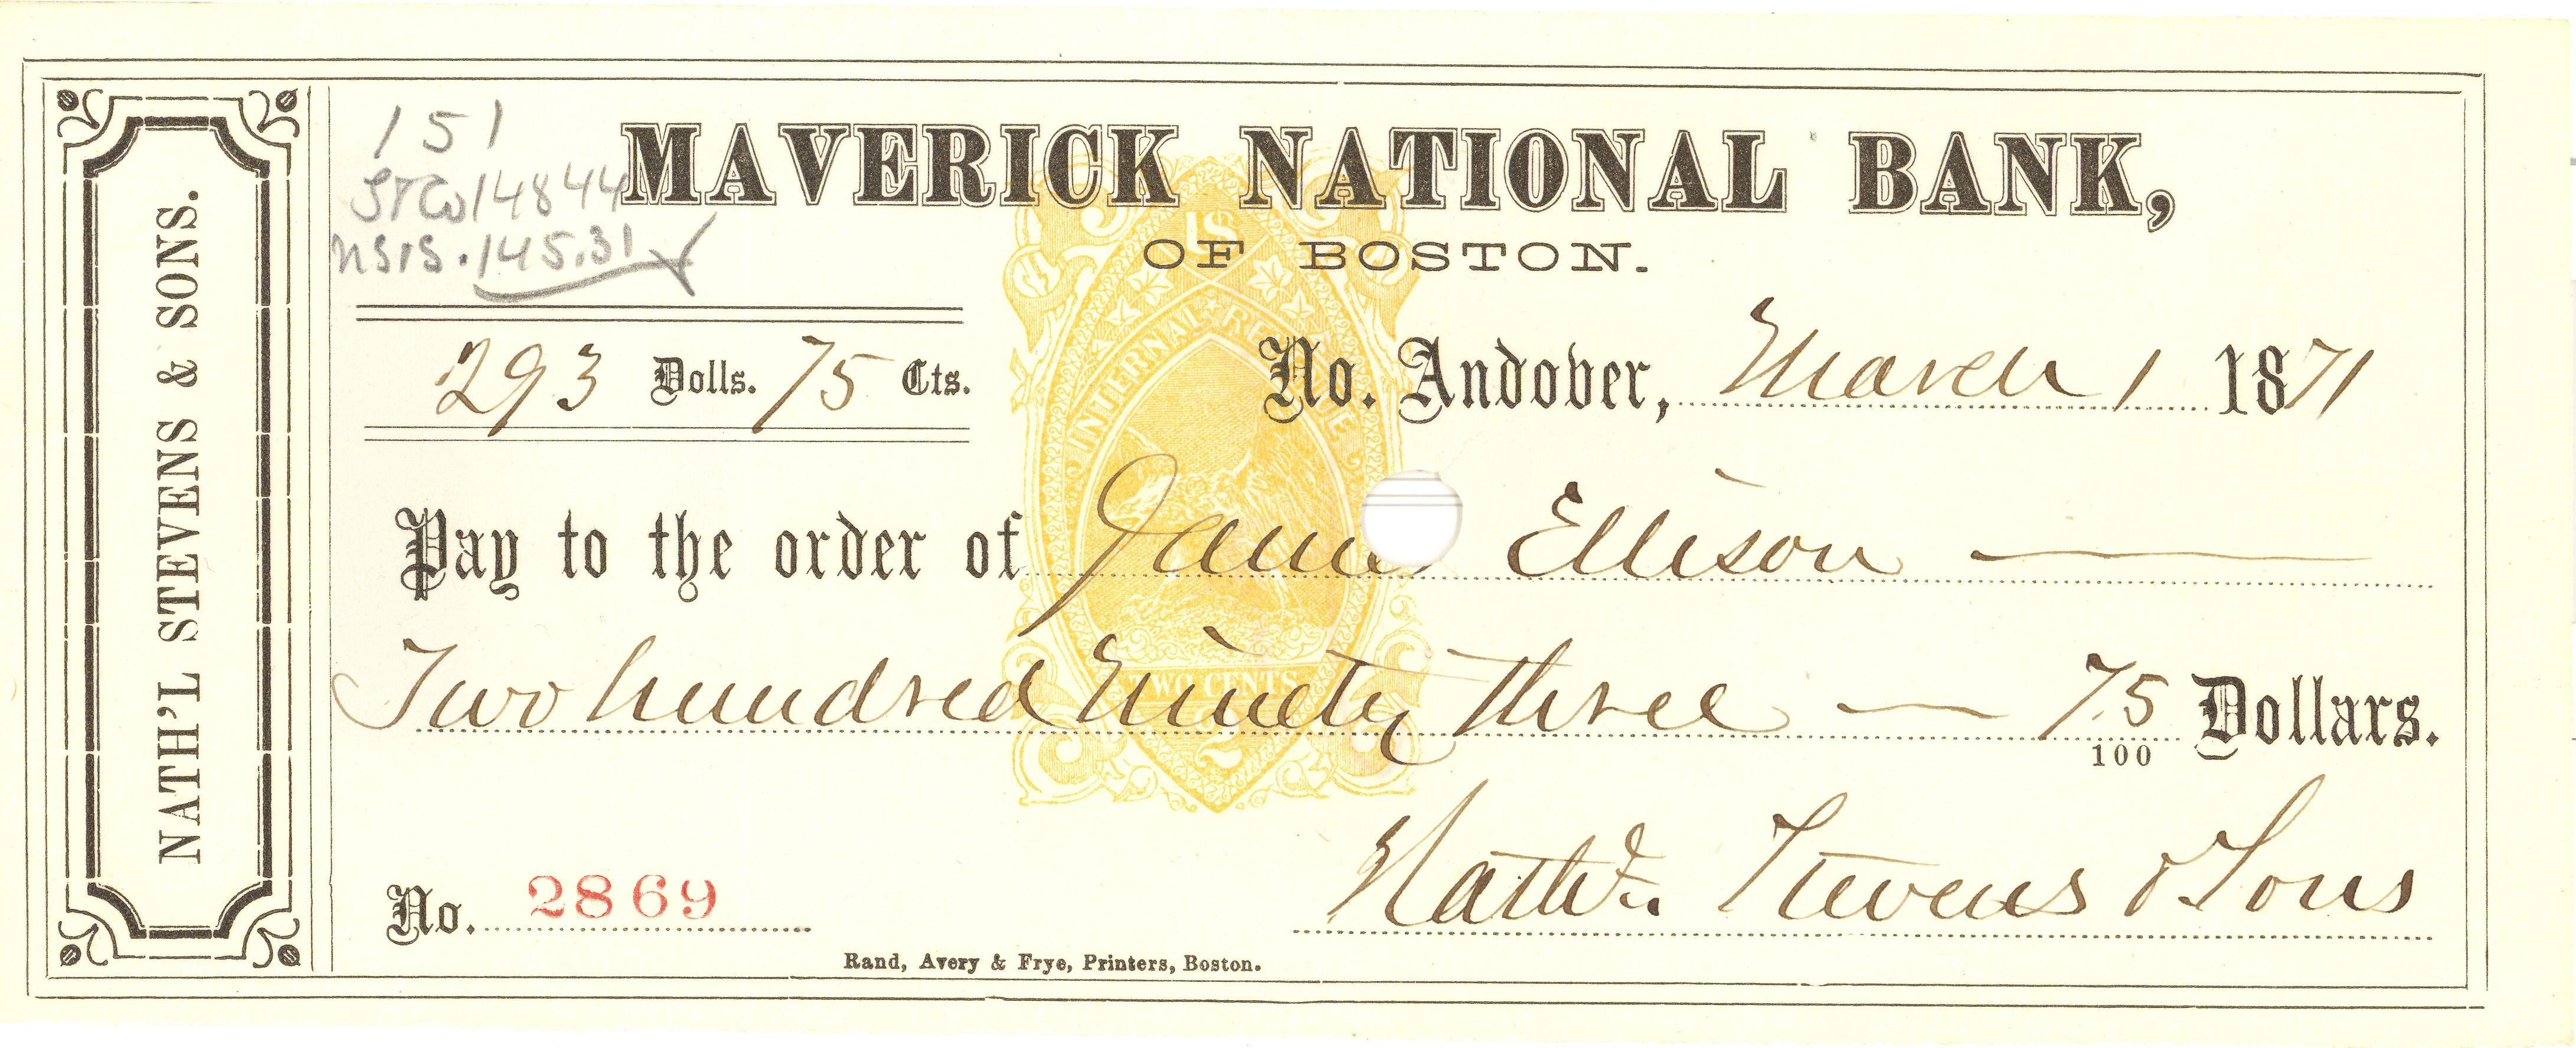 NATH'L STEVENS & SONS.
151
STCo 148 44
NS&S. 145.31
MAVERICK NATIONAL BANK,
OF BOSTON.
U.S. INTERNAL REVENUE
293 Dolls. 75 Cts.
No. Andover, March 1 1871
Pay to the order of James Ellison
Two hundred Ninety three 75/100 Dollars.
TWO CENTS
2
Nathl. Stevens & Sons
No. 2869
Rand, Avery & Frye, Printers, Boston.